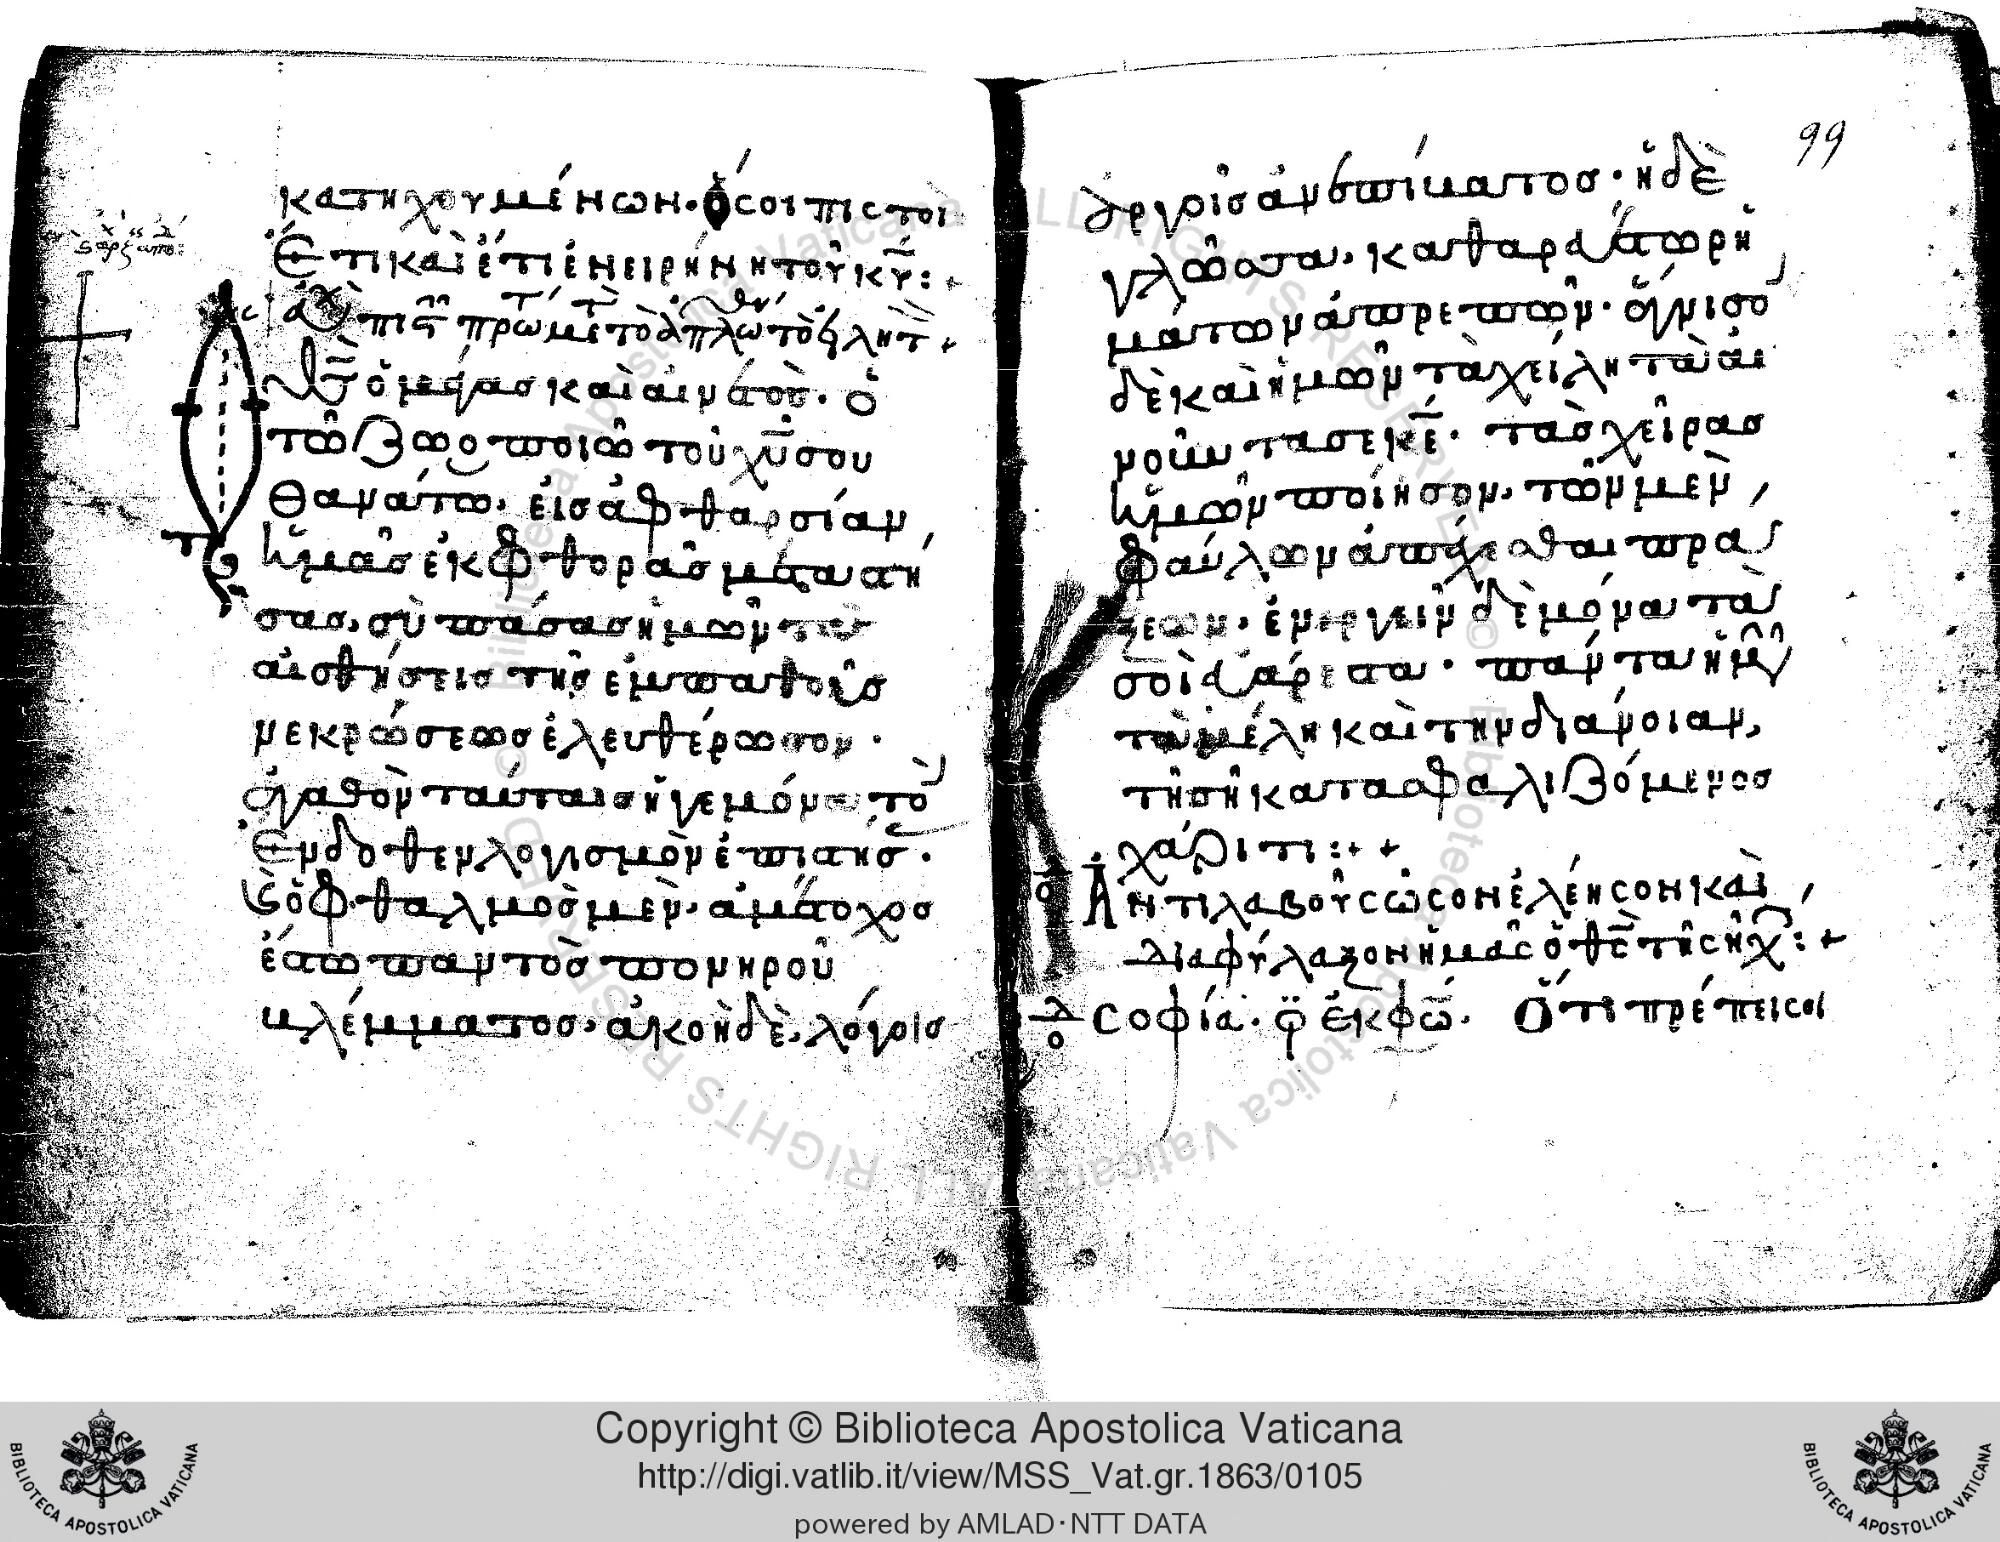 κατηχουμένων· ὅσοι πιστοί
Ἔτι καὶ ἔτι ἐν εἰρήνη τοῦ κυ̅:+
πρω μετὰ τὸ ἁπλω
ὁ μέγας καὶ αἰνετὸς· ὁ
τῶ ζωοποιῶ τοῦ χυ̅ σου
θανάτω, εἰς ἀφθαρσίαν
ἡμᾶς ἐκ φθορᾶς μεταστή
σας, σὺ πάσας ἡμῶν τὰς
αἰσθήσεις τῆς ἐμπαθοῦς
νεκρώσεως ἐλευθέρωσον·
ἀγαθὸν ταύταις ἡγεμόνα τὸν
ἔνδοθεν λογισμὸν ἐπιστήσας·
καὶ ὀφθαλμὸς μὲν, ἀμέτοχος
ἔστω παντὸς πονηροῦ
βλέμματος, ἀκοὴ δὲ, λόγοις
99
ἀργοῖς ἀνεπίβατος· ἡ δὲ
γλῶσσα, καθαρευέτω ῥη
μάτων ἀπρεπῶν· ἅγνισον
δὲ καὶ ἡμῶν τὰ χείλη τὰ αἰ
νοῦντα σε κε̅· τὰς χεῖρας
ἡμῶν ποίησον, τῶν μὲν
φαύλων ἀπέχεσθαι πρά
ξεων· ἐνεργεῖν δὲ μόνα τὰ
σοὶ εὐάρεστα· πάντα ἡμῶν
τὰ μέλη καὶ τὴν διάνοιαν,
τῆ σῆ κατασφαλιζόμενος
χάριτι:++
Ἀντιλαβοῦ σῶσον ἐλέησον καὶ
διαφύλαξον ἡμᾶς ὁ θε̅ τῆ σῆ χ:+
σοφία· ἐκφώ. Ὅτι πρέπει σοι
Copyright © Biblioteca Apostolica Vaticana
http://digi.vatlib.it/view/MSS_Vat.gr.1863/0105
powered by AMLAD·NTT DATA
BIBLIOTECA APOSTOLICA VATICANA
BIBLIOTECA APOSTOLICA VATICANA